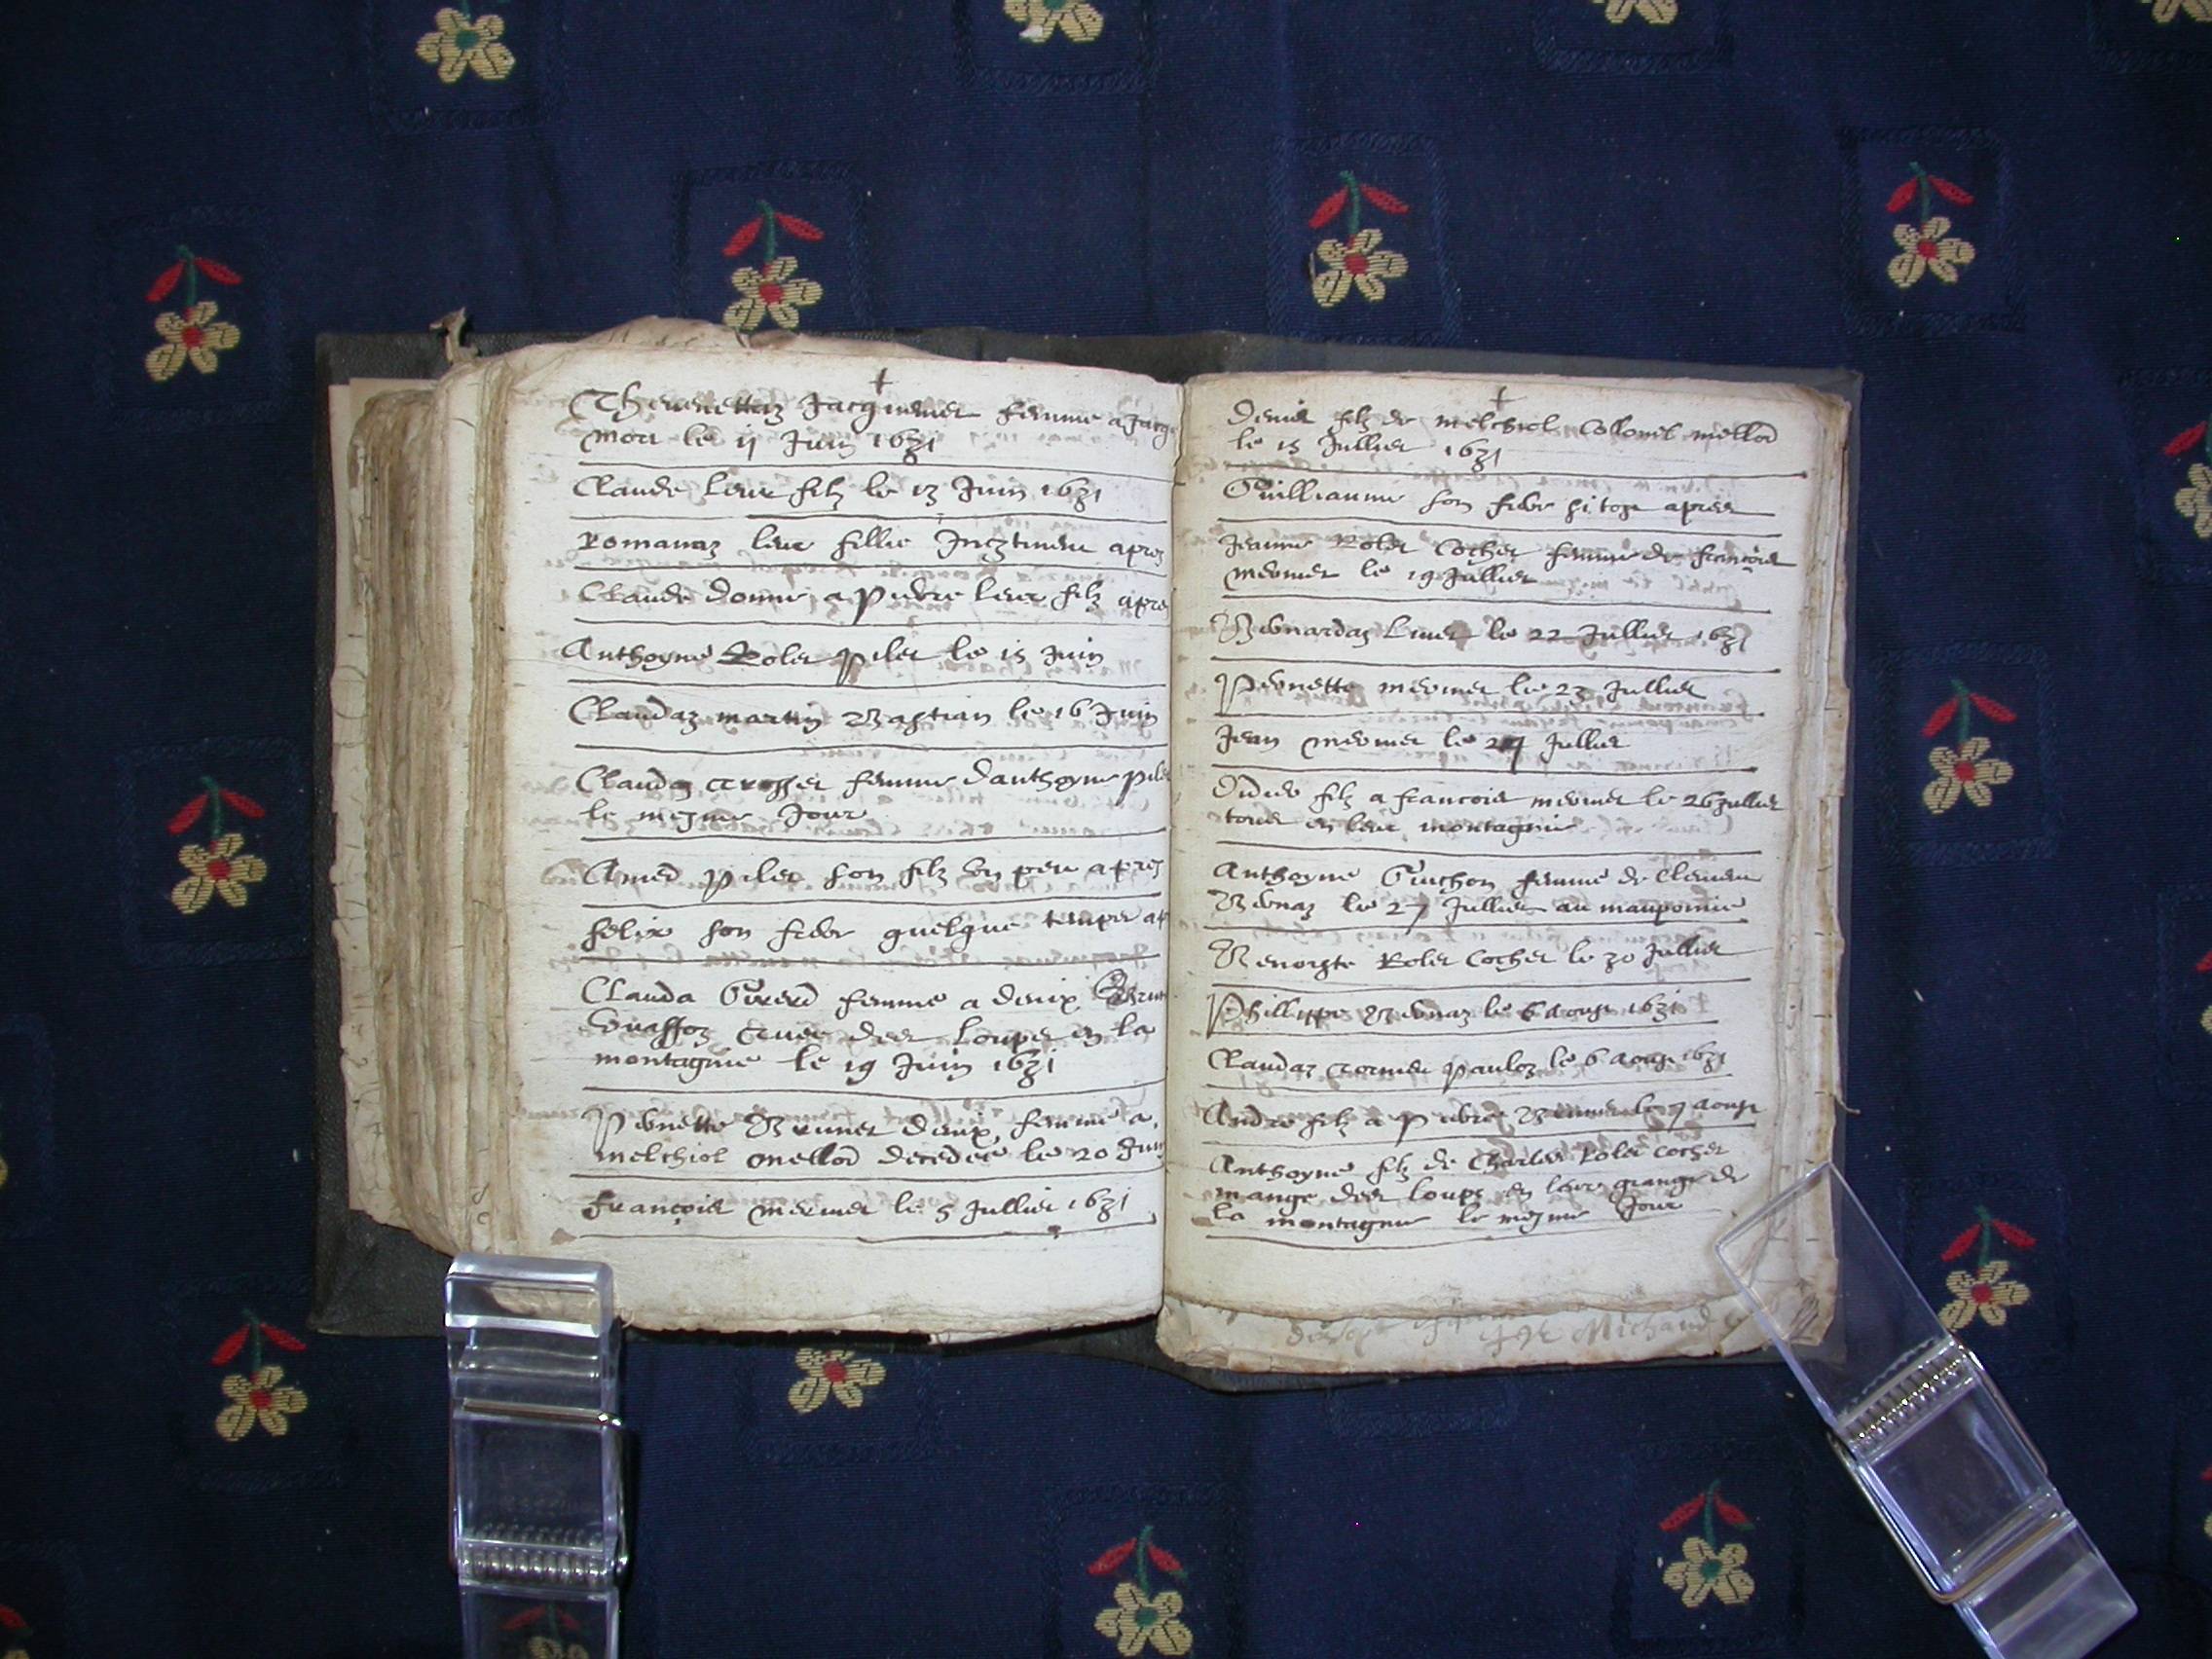 Thevenettaz Jacquemet femme a Jacq
mort le ij Juin 1631
Claude leur filz le 13 Juin 1631
Romanaz leur fillie apres
Claude donne a Pierre leur filz apres
Anthoyne Rolet Pilet le 15 Juin
Claudaz martin Bastian le 16 Juin
Claudaz femme danthoyne pilet
le mesme Jour
Amed Pilet son filz un peu apres
felix son frere quelque temps ap
Clauda Girerd femme a denix
des loups en la
montagnie le 19 Juin 1631
Pernette Brunet denix femme a
melchiol mellod decedee le 20 Juin
François mermet le 5 Jullier 1631
denis filz de melchiol Colomb mellod
le 15 Jullier 1631
Guilliaume son frere si tost apres
Jeanne Rolet Cochet femme de françois
mermet le 19 Jullier
Bernardaz le 22 Jullier 1631
Pernette mermet le 23 Jullier
Jean mermet le 24 Jullier
Didier filz a francois mermet le 26 Jullier
tous en leur montagnie
Anthoyne Guichon femme de Clement
Bernaz le 27 Jullier au
Benoyte Rolet Cochet le 30 Jullier
Phillippe Bernaz le 6 aoust 1631
Claudaz le 6 aoust 1631
Andre filz a Pierre le 7 aoust
Anthoyne filz de Charles Rolet cochet
mange des loups en leur grange de
la montagnie le mesme Jour
Michaud